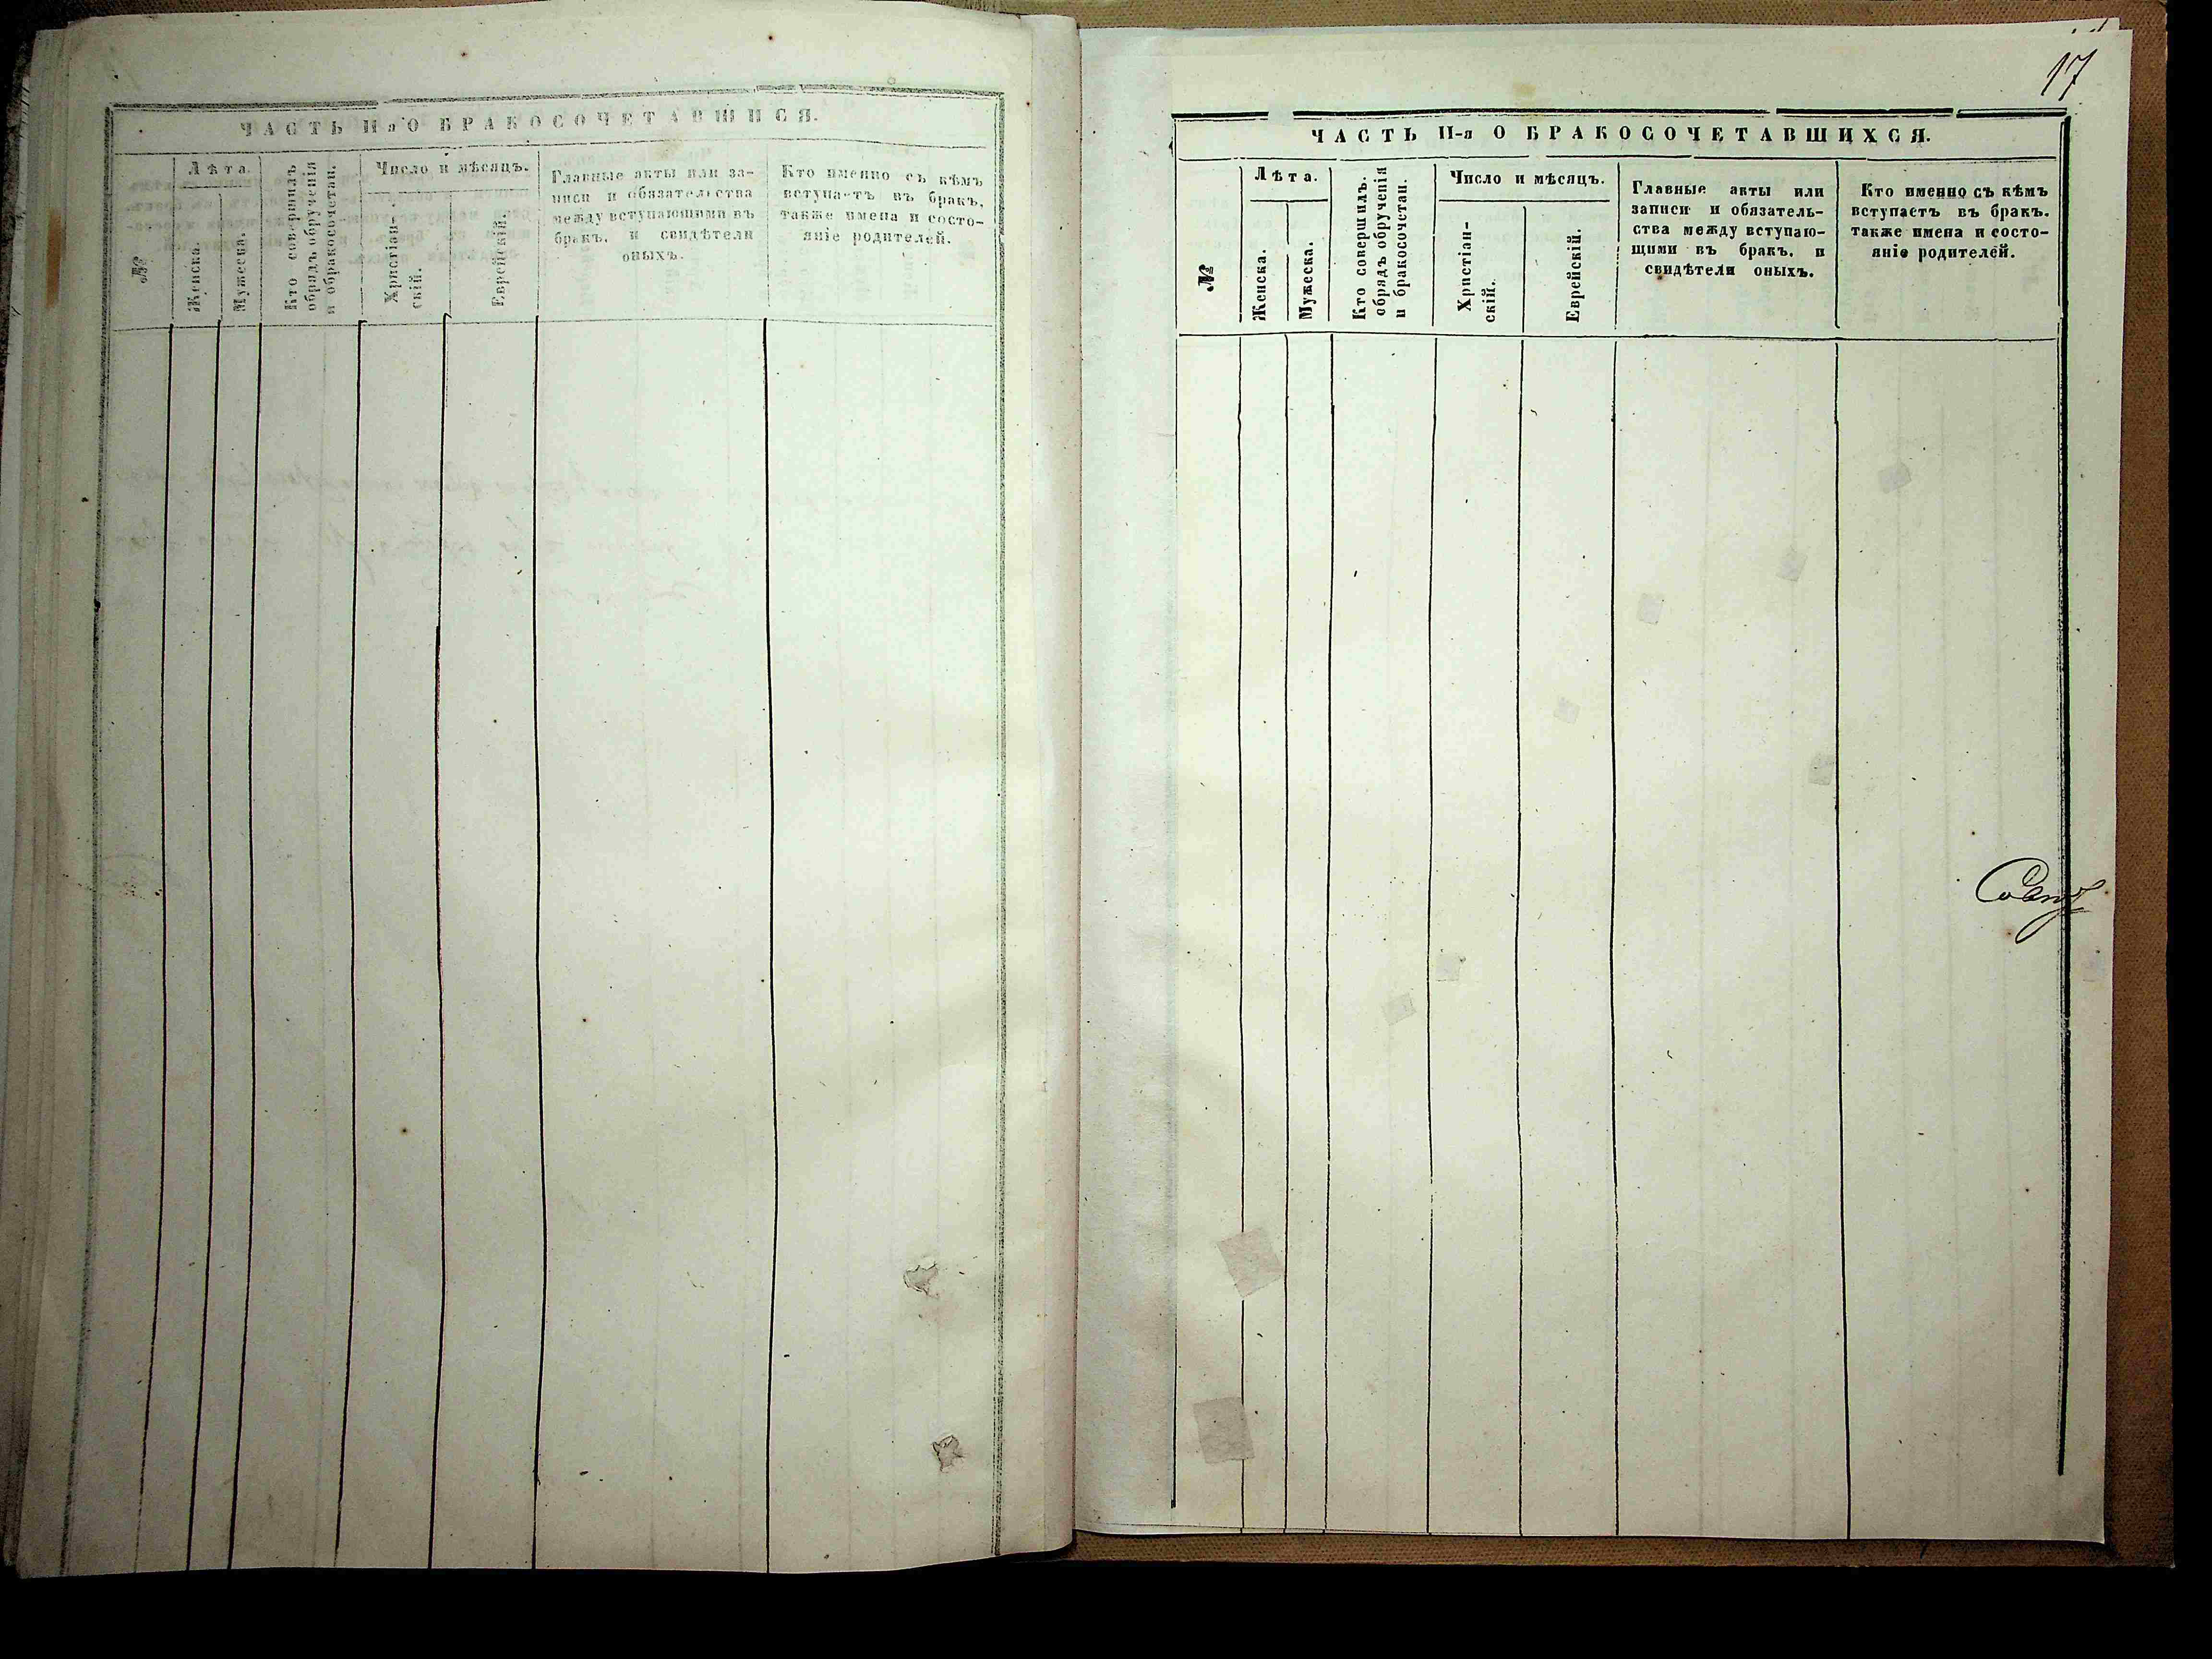 ЧАСТЬ II я О БРАКОСОЧЕТАВШИХСЯ.
№
Лѣта.
Женска.
Мужеска.
Кто совершилъ
обрядъ обрученія
и бракосочетан.
Число и мѣсяцъ.
Христіан-
скій.
Еврейскій.
Главные акты или за-
писи и обязательства
между вступающими въ
бракъ, и свидѣтели
оныхъ.
Кто именно съ кѣмъ
вступаетъ въ бракъ,
также имена и состо-
яніе родителей.
17
ЧАСТЬ II-я О БРАКОСОЧЕТАВШИХСЯ.
№
Лѣта.
Женска.
Мужеска.
Кто совершилъ.
обрядъ обрученія
и бракосочетан.
Число и мѣсяцъ.
Христіан-
скій.
Еврейскій.
Главные акты или
записи и обязатель-
ства между вступаю-
щими въ бракъ, и
свидѣтели оныхъ.
Кто именно съ кѣмъ
вступаетъ въ бракъ.
также имена и состо-
яніе родителей.